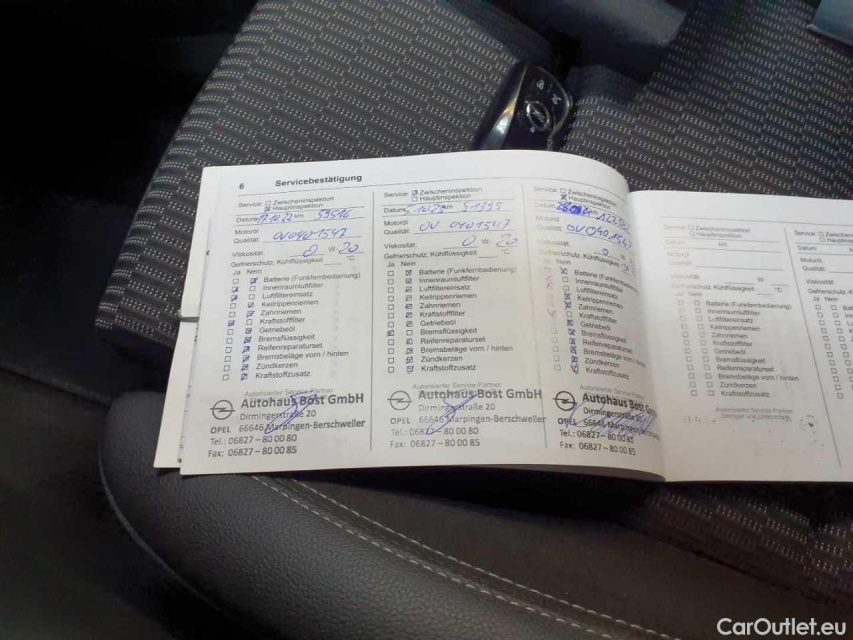 6 Servicebestätigung
Service: Zwischeninspektion
Hauptinspektion
Datum 17.10.22 km 53516
Motoröl
Qualität OV0401547
Viskosität: 0 W- 20
Gefrierschutz, Kühlflüssigkeit °C
Ja Nein
Batterie (Funkfernbedienung)
Innenraumluftfilter
Luftfiltereinsatz
Keilrippenriemen
Zahnriemen
Kraftstofffilter
Getriebeöl
Bremsflüssigkeit
Reifenreparaturset
Bremsbeläge vorn / hinten
Zündkerzen
Kraftstoffzusatz
Autorisierter Service Partner
Autohaus Bost GmbH
Dirmingerstraße 20
OPEL 66646 Marpingen-Berschweiler
Tel.: 06827 – 80 00 80
Fax: 06827 – 80 00 85
Service: Zwischeninspektion
Hauptinspektion
Datum km
Motoröl
Qualität: OV 0401547
Viskosität: 0 W- 20
Gefrierschutz, Kühlflüssigkeit °C
Ja Nein
Batterie (Funkfernbedienung)
Innenraumluftfilter
Luftfiltereinsatz
Keilrippenriemen
Zahnriemen
Kraftstofffilter
Getriebeöl
Bremsflüssigkeit
Reifenreparaturset
Bremsbeläge vorn / hinten
Zündkerzen
Kraftstoffzusatz
Autorisierter Service Partner
Autohaus Bost GmbH
Dirmingerstraße 20
OPEL 66646 Marpingen-Berschweiler
Tel.: 06827 – 80 00 80
Fax: 06827 – 80 00 85
Service: Zwischeninspektion
Hauptinspektion
Datum km
Motoröl
Qualität: OV0401547
Viskosität: 0
Gefrierschutz, Kühlflüssigkeit
Ja Nein
Batterie (Funkfernbedienung)
Innenraumluftfilter
Luftfiltereinsatz
Keilrippenriemen
Zahnriemen
Kraftstofffilter
Getriebeöl
Bremsflüssigkeit
Reifenreparaturset
Bremsbeläge vorn / hinten
Zündkerzen
Kraftstoffzusatz
Autorisierter Service Partner
Autohaus Bost GmbH
Dirmingerstraße
OPEL 66646 Marpingen-
Tel.: 06827 – 80 00 80
Fax: 06827 – 80 00 85
Service: Zwischeninspektion
Hauptinspektion
Datum km
Motoröl
Qualität
Viskosität: W-
Gefrierschutz, Kühlflüssigkeit °C
Ja Nein
Batterie (Funkfernbedienung)
Innenraumluftfilter
Luftfiltereinsatz
Keilrippenriemen
Zahnriemen
Kraftstofffilter
Getriebeöl
Bremsflüssigkeit
Reifenreparaturset
Bremsbeläge vorn / hinten
Zündkerzen
Kraftstoffzusatz
Autorisierter Service Partner
Service:
Datum
Motoröl
Qualität:
Viskosität:
Gefrierschutz,
Ja Nein
CarOutlet.eu